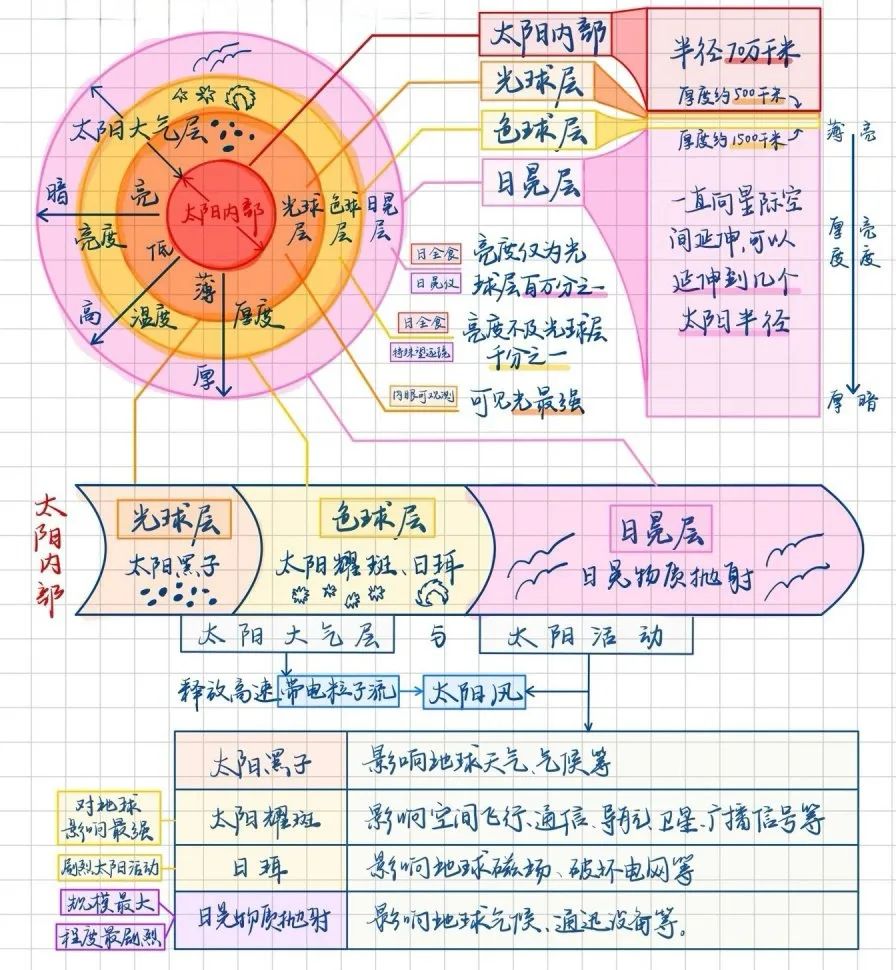 太阳内部
半径70万千米
光球层
厚度约500千米
色球层
厚度约1500千米
日晃层
一直向星际空
间延伸,可以
延伸到几个
太阳半径
薄 亮
厚度
亮度
厚 暗
太阳大气层
太阳内部
光球层
色球层
日晃层
暗
亮
亮度
低
高
温度
薄
厚度
厚
日全食
日晃仪
亮度仅为光
球层百万分之一
日全食
特殊望远镜
亮度不及光球层
千分之一
肉眼可观测
可见光最强
太阳内部
光球层
太阳黑子
色球层
太阳耀斑、日珥
日晃层
日晃物质抛射
太阳大气层 与 太阳活动
释放高速带电粒子流
太阳风
太阳黑子
影响地球天气、气候等
对地球
影响最强
太阳耀斑
影响空间飞行、通信、导航、卫星、广播信号等
剧烈太阳活动
日珥
影响地球磁场、破坏电网等
规模最大
程度最剧烈
日晃物质抛射
影响地球气候、通迅设备等。